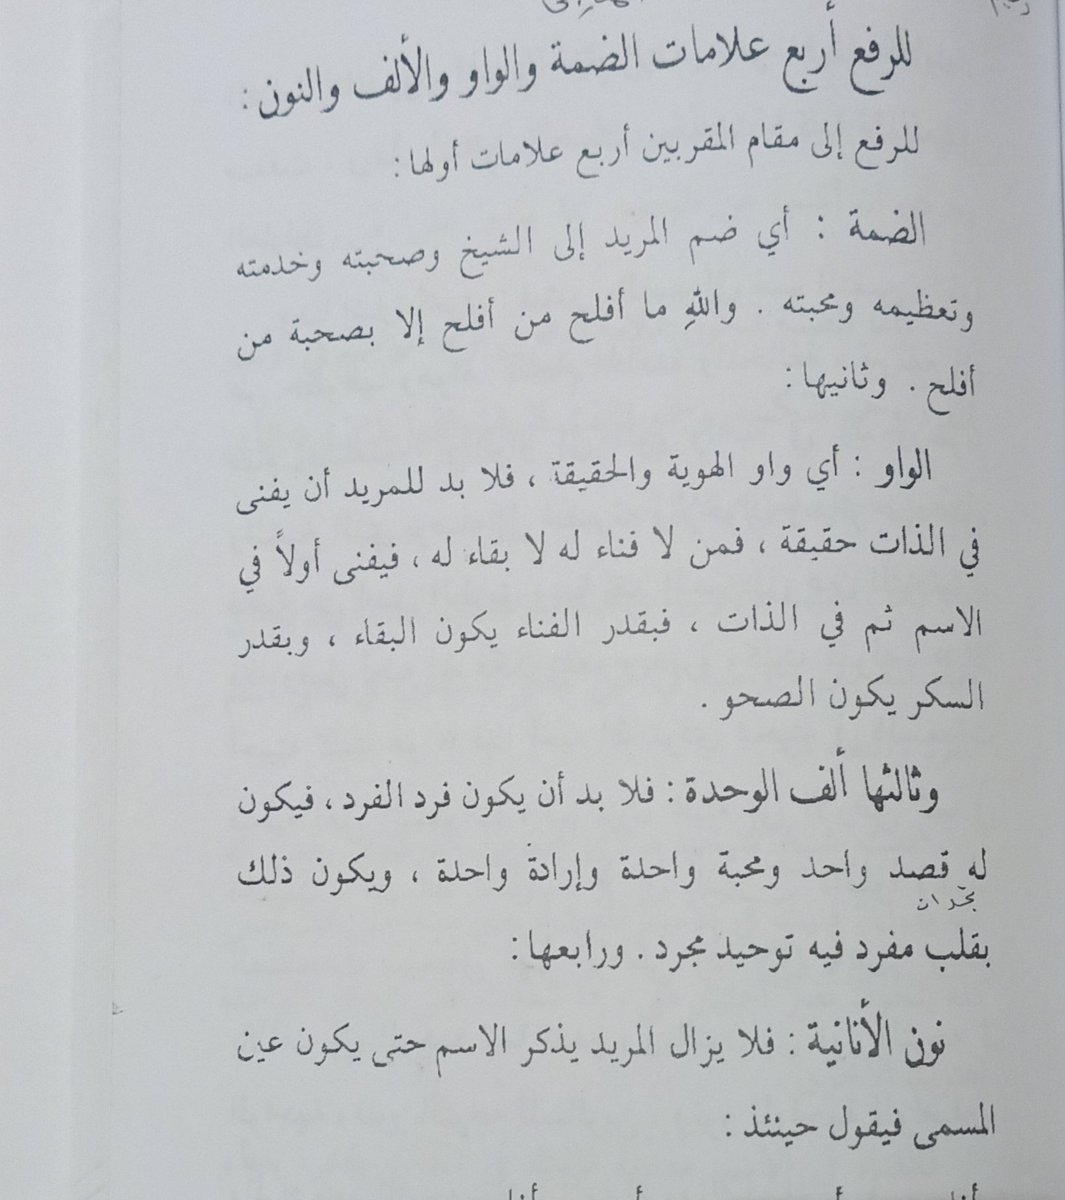 للرفع أربع علامات الضمة والواو والألف والنون :
للرفع إلى مقام المقربين أربع علامات أولها :
الضمة : أي ضم المريد إلى الشيخ وصحبته وخدمته
وتعظيمه ومحبته . واللهِ ما أفلح من أفلح إلا بصحبة من
أفلح . وثانيها :
الواو : أي واو الهوية والحقيقة ، فلا بد للمريد أن يفنى
في الذات حقيقة ، فمن لا فناء له لا بقاء له ، فيفنى أولاً في
الاسم ثم في الذات ، فبقدر الفناء يكون البقاء ، وبقدر
السكر يكون الصحو .
وثالثها ألف الوحدة : فلا بد أن يكون فرد الفرد ، فيكون
له قصد واحد ومحبة واحدة وإرادة واحدة ، ويكون ذلك
بقلب مفرد فيه توحيد مجرد . ورابعها :
نون الأنانية : فلا يزال المريد يذكر الاسم حتى يكون عين
المسمى فيقول حينئذ :